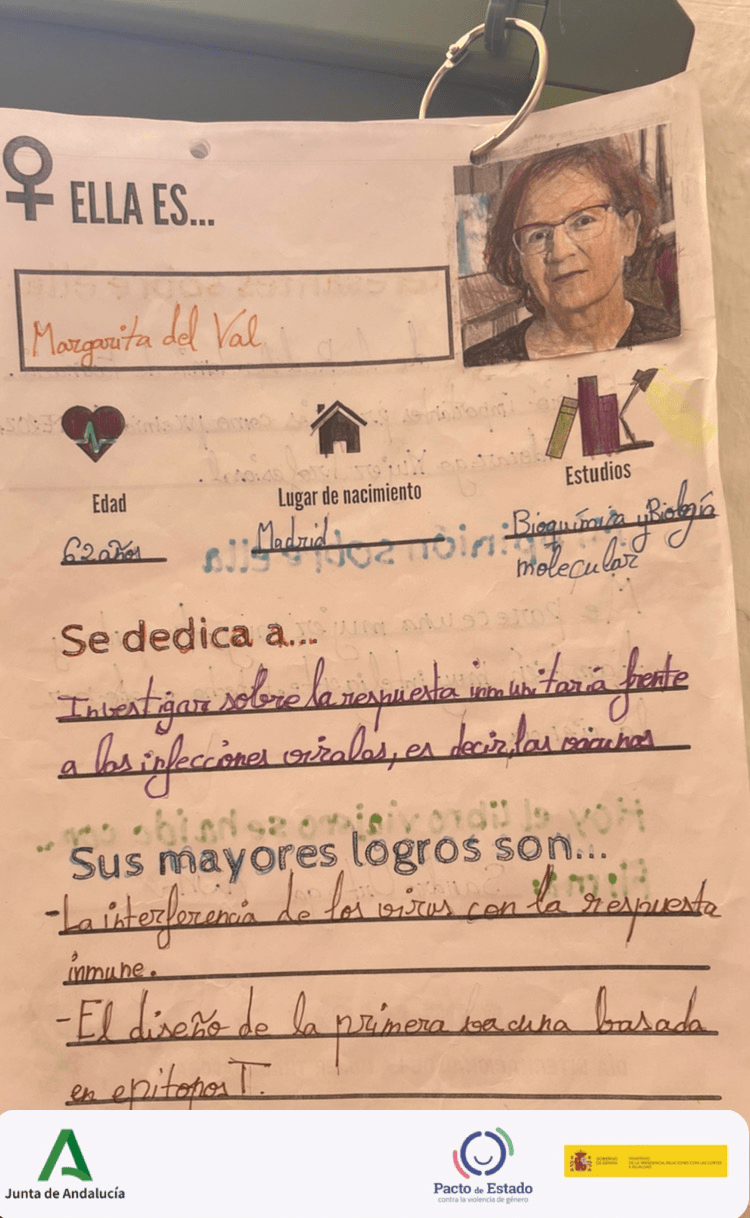 ELLA ES...
Margarita del Val
Edad
62 años
Lugar de nacimiento
Madrid
Estudios
Bioquímica y Biología
molecular
Se dedica a...
Investigar sobre la respuesta inmunitaria frente
a las infecciones virales, es decir, las vacunas
Sus mayores logros son...
-La interferencia de los virus con la respuesta
inmune.
-El diseño de la primera vacuna basada
en epitopos T.
Junta de Andalucía
Pacto de Estado
contra la violencia de género
GOBIERNO
DE ESPAÑA
MINISTERIO
DE LA PRESIDENCIA, RELACIONES CON LAS CORTES
E IGUALDAD